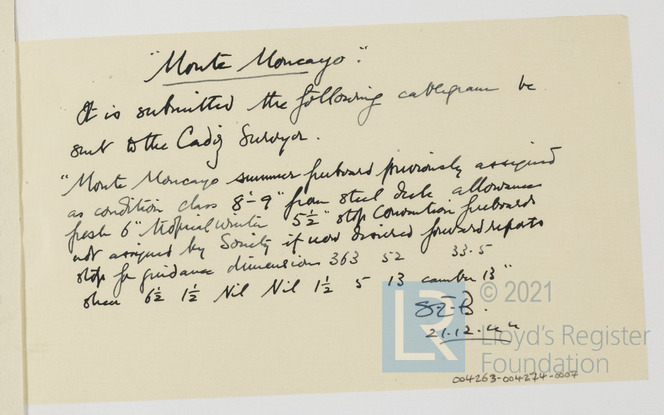 "Monte Moncayo".
It is submitted the following cablegram be
sent to the Cadiz Surveyor.
"Monte Moncayo summer freeboard previously assigned
as condition class 8'-9" from steel deck allowances
fresh 6" tropical winter 5½" stop Convention freeboards
not assigned by Society if now desired forward repats
stop for guidance dimensions 363 52 33.5
sheer 6½ 1½ Nil Nil 1½ 5 13 camber 13"
21.12.44
© 2021
LR
Lloyd's Register
Foundation
004263-004274-0007